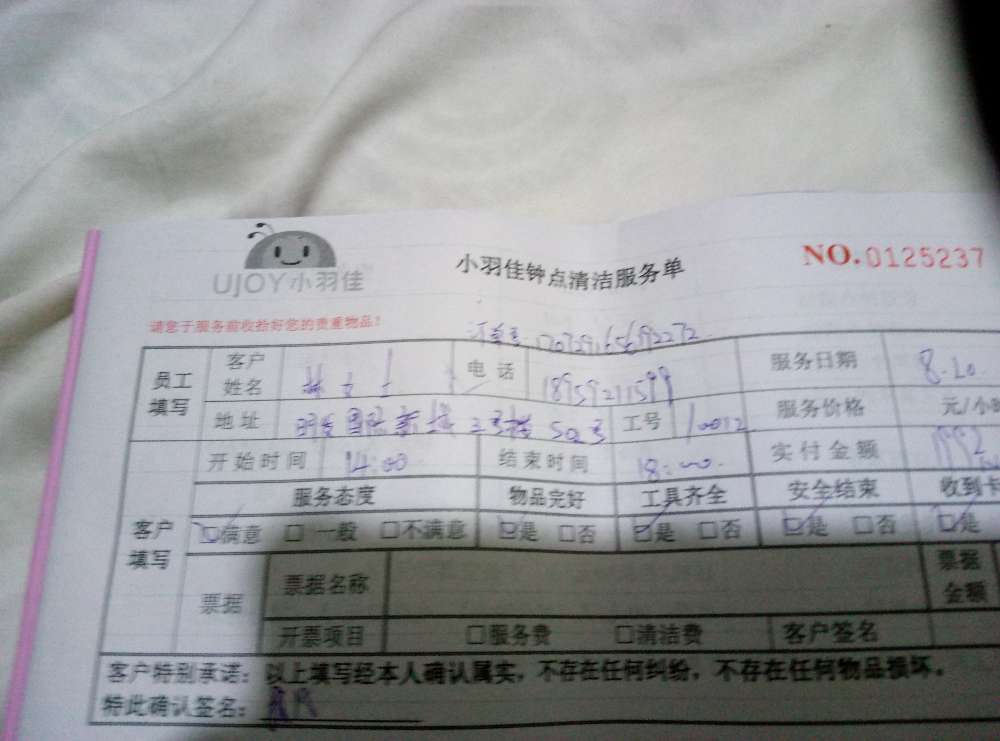 UJOY小羽佳
小羽佳钟点清洁服务单
NO.0125237
请您于服务前收拾好您的贵重物品!
订单号:
员工填写 客户姓名 林女士 电话 18959211599 服务日期 8.20
地址 明发国际新城 工号 10012 服务价格 元/小
开始时间 14:00 结束时间 18:00 实付金额
客户填写 服务态度 物品完好 工具齐全 安全结束 收到卡
满意 □ 一般 □不满意 是 □否 是 □否 是 □否 是
票据 票据名称 票据金额
开票项目 □服务费 □清洁费 客户签名
客户特别承诺:以上填写经本人确认属实,不存在任何纠纷,不存在任何物品损坏。
特此确认签名: